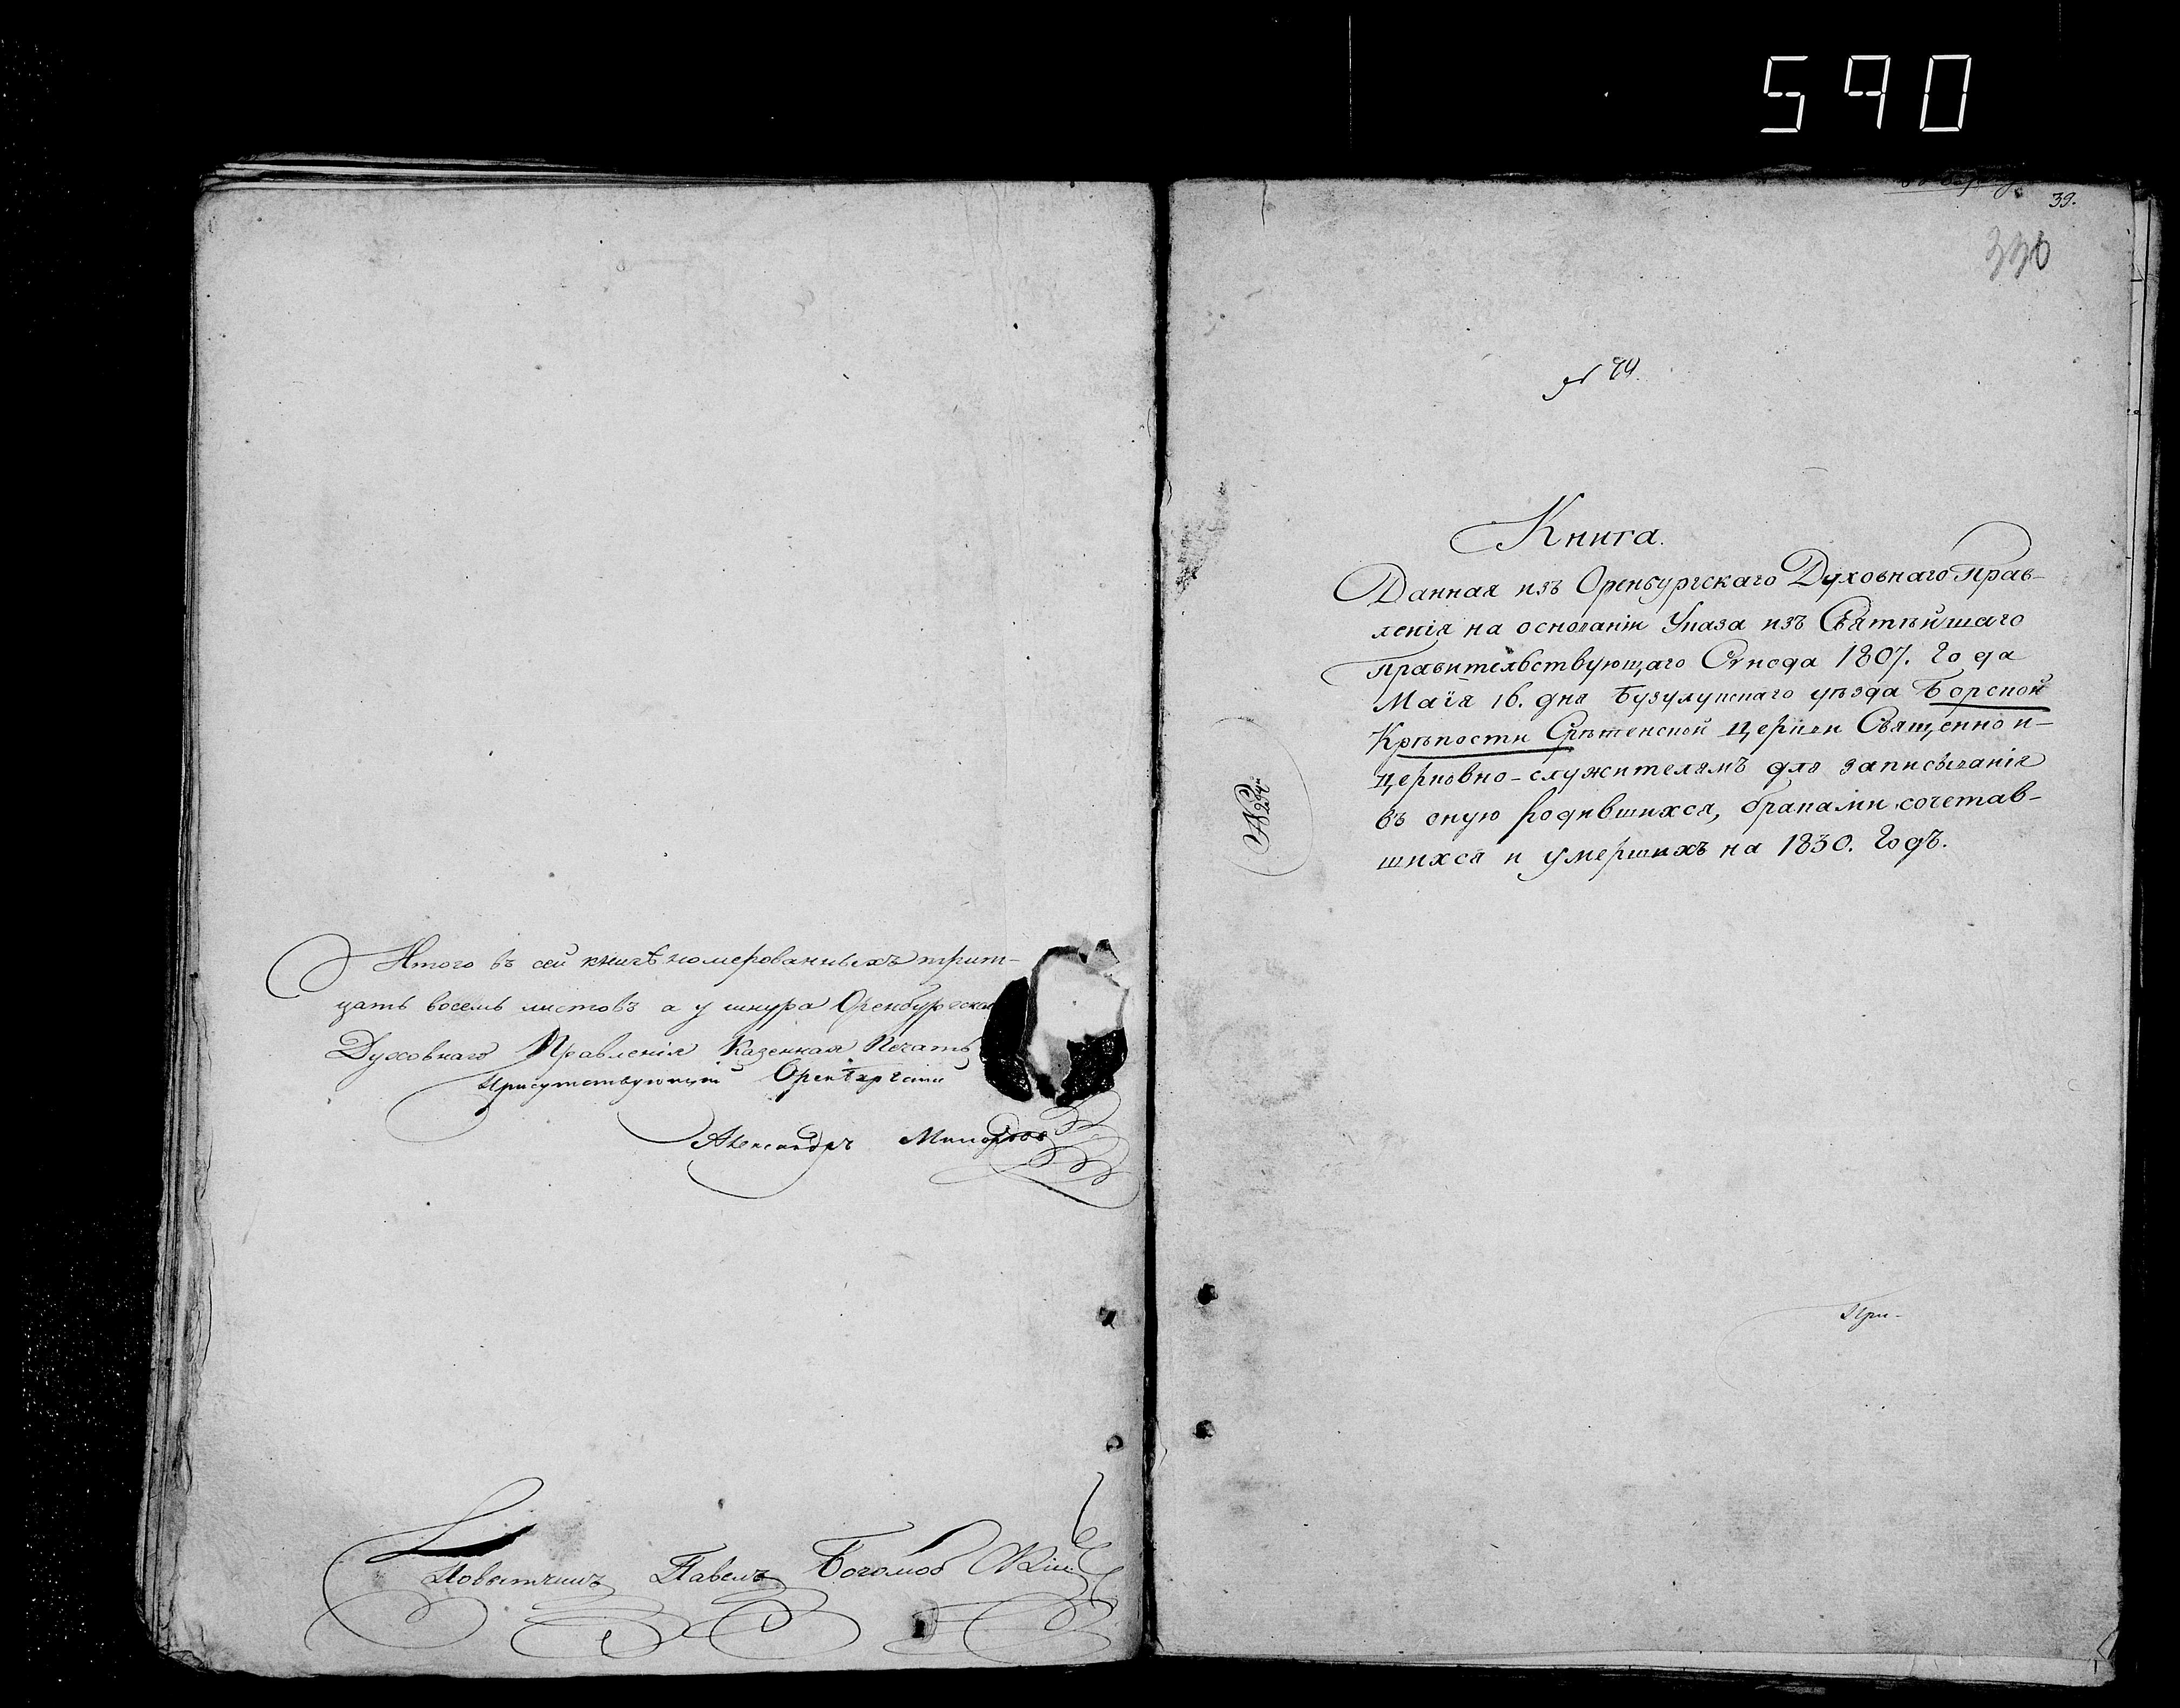 590
Итого въ сей книгѣ номерованныхъ трит-
цать восемь листовъ а у шнура Оренбургскаго
Духовнаго Правленія Казенная Печать
Присутствующій
Александръ
Повытчикъ Павелъ Боголюбскій
39.
330
№
Книга.
Данная изъ Оренбургскаго Духовнаго Прав-
ленія на основаніи Указа изъ Святѣйшаго
Правительствующаго Сѵнода 1807. Года
Маїя 16. дня Бузулукскаго уѣзда Борской
Крѣпости Срѣтенской Церкви Священно и-
Церковно-служителямъ для записыванія
въ оную родившихся, браками сочетав-
шихся и умершихъ на 1830. Годъ.
При-